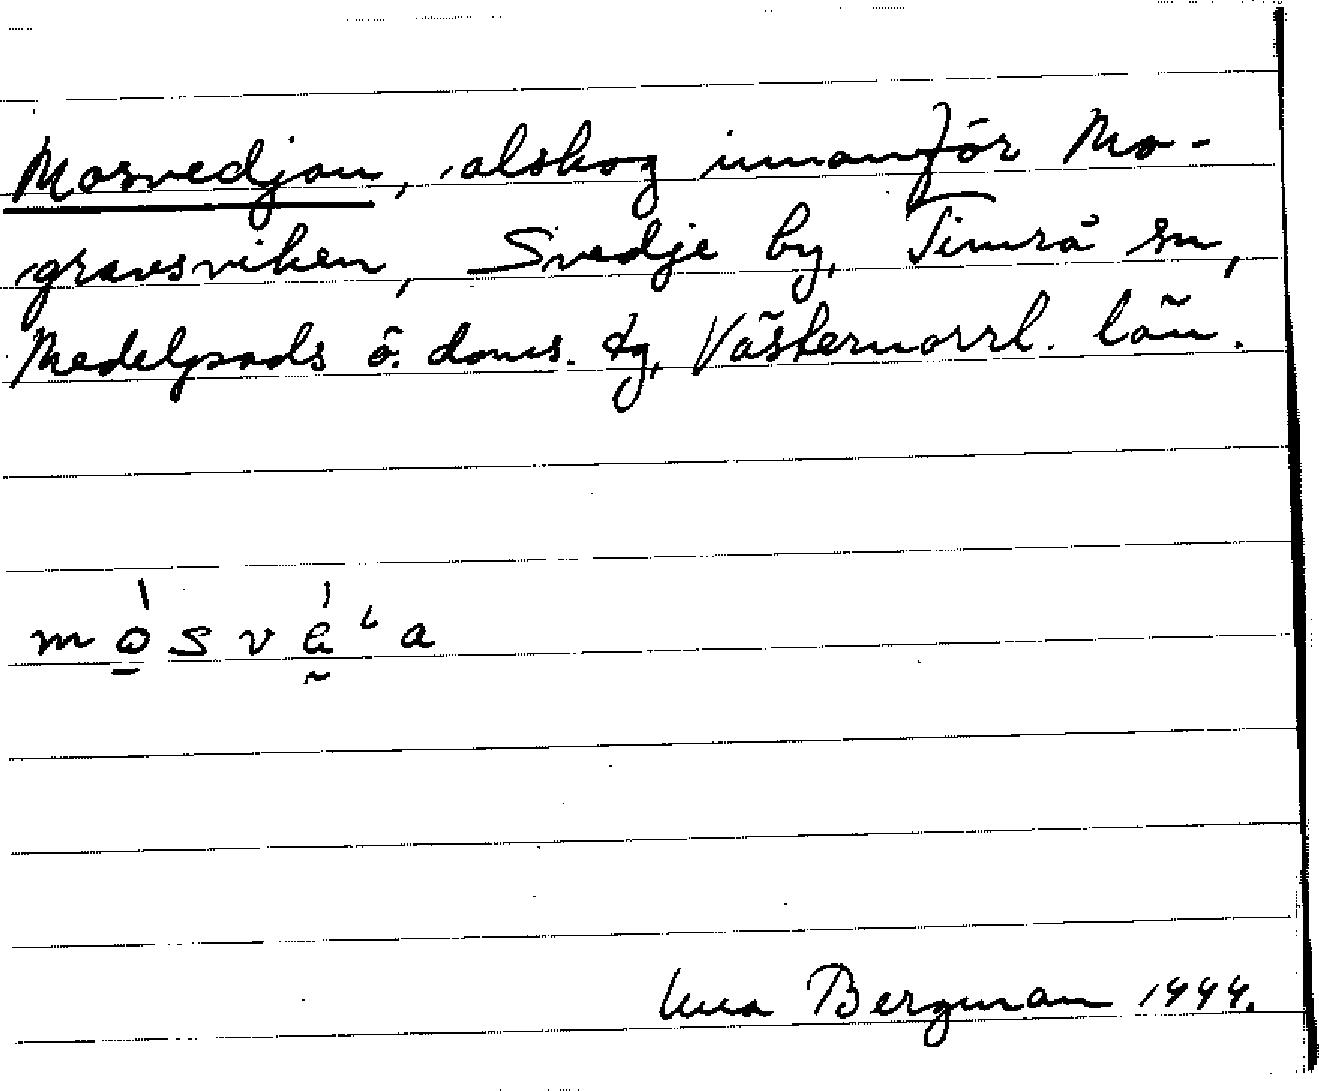 Mosvedjan, alskog innanför Mo-
gravsviken, Svedje by, Timrå sn,
Medelpads ö. doms. tg, Västernorrl. län.
Bergman 1944.